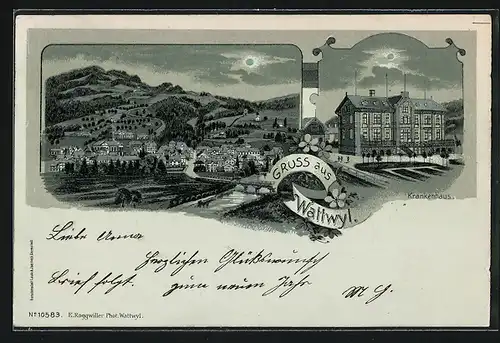 GRUSS aus
Wattwyl.
Krankenhaus.
Liebe Anna
Herzlichen Glückwünsch
Brief folgt. zum neuen Jahr
M G.
No 10583. E. Roggwiller Phot. Wattwyl.